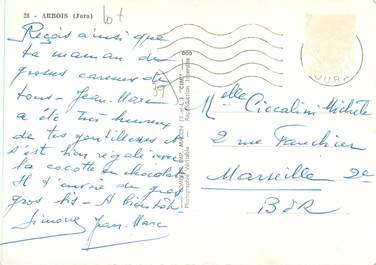 28 - ARBOIS (Jura)
lot
Reçois ainsi que
ta maman de
grosses caresses de
tous - Jean-Marc
a été très heureux
de tes gentillesses et
s'est bien régalé avec
la cocotte en chocolat
Il t'envoie de gros
gros bis - A bientôt
Simone Jean-Marc
JURA
Photographie Véritable - Reproduction interdite
Melle Ciccalini Michèle
2 rue Fauchier
Marseille 2e
BdR